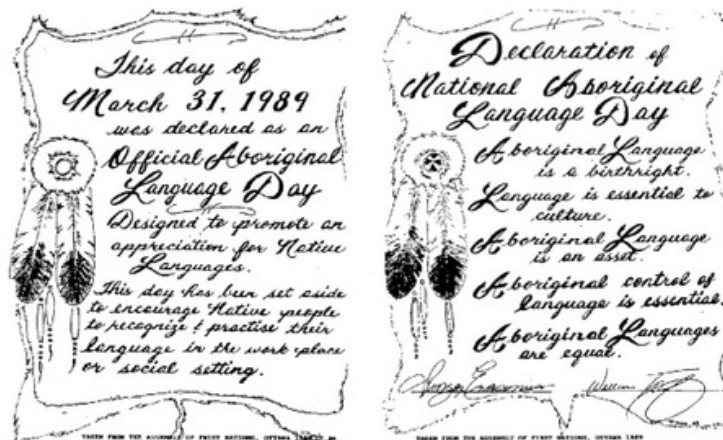 This day of
March 31, 1989
was declared as an
Official Aboriginal
Language Day
Designed to promote an
appreciation for Native
Languages.
This day has been set aside
to encourage Native people
to recognize & practise their
language in the work place
or social setting.
TAKEN FROM THE ASSEMBLY OF FIRST NATIONS, OTTAWA
Declaration of
National Aboriginal
Language Day
Aboriginal Language
is a birthright.
Language is essential to
culture.
Aboriginal Language
is an asset.
Aboriginal control of
language is essential.
Aboriginal Languages
are equal.
TAKEN FROM THE ASSEMBLY OF FIRST NATIONS, OTTAWA 1989